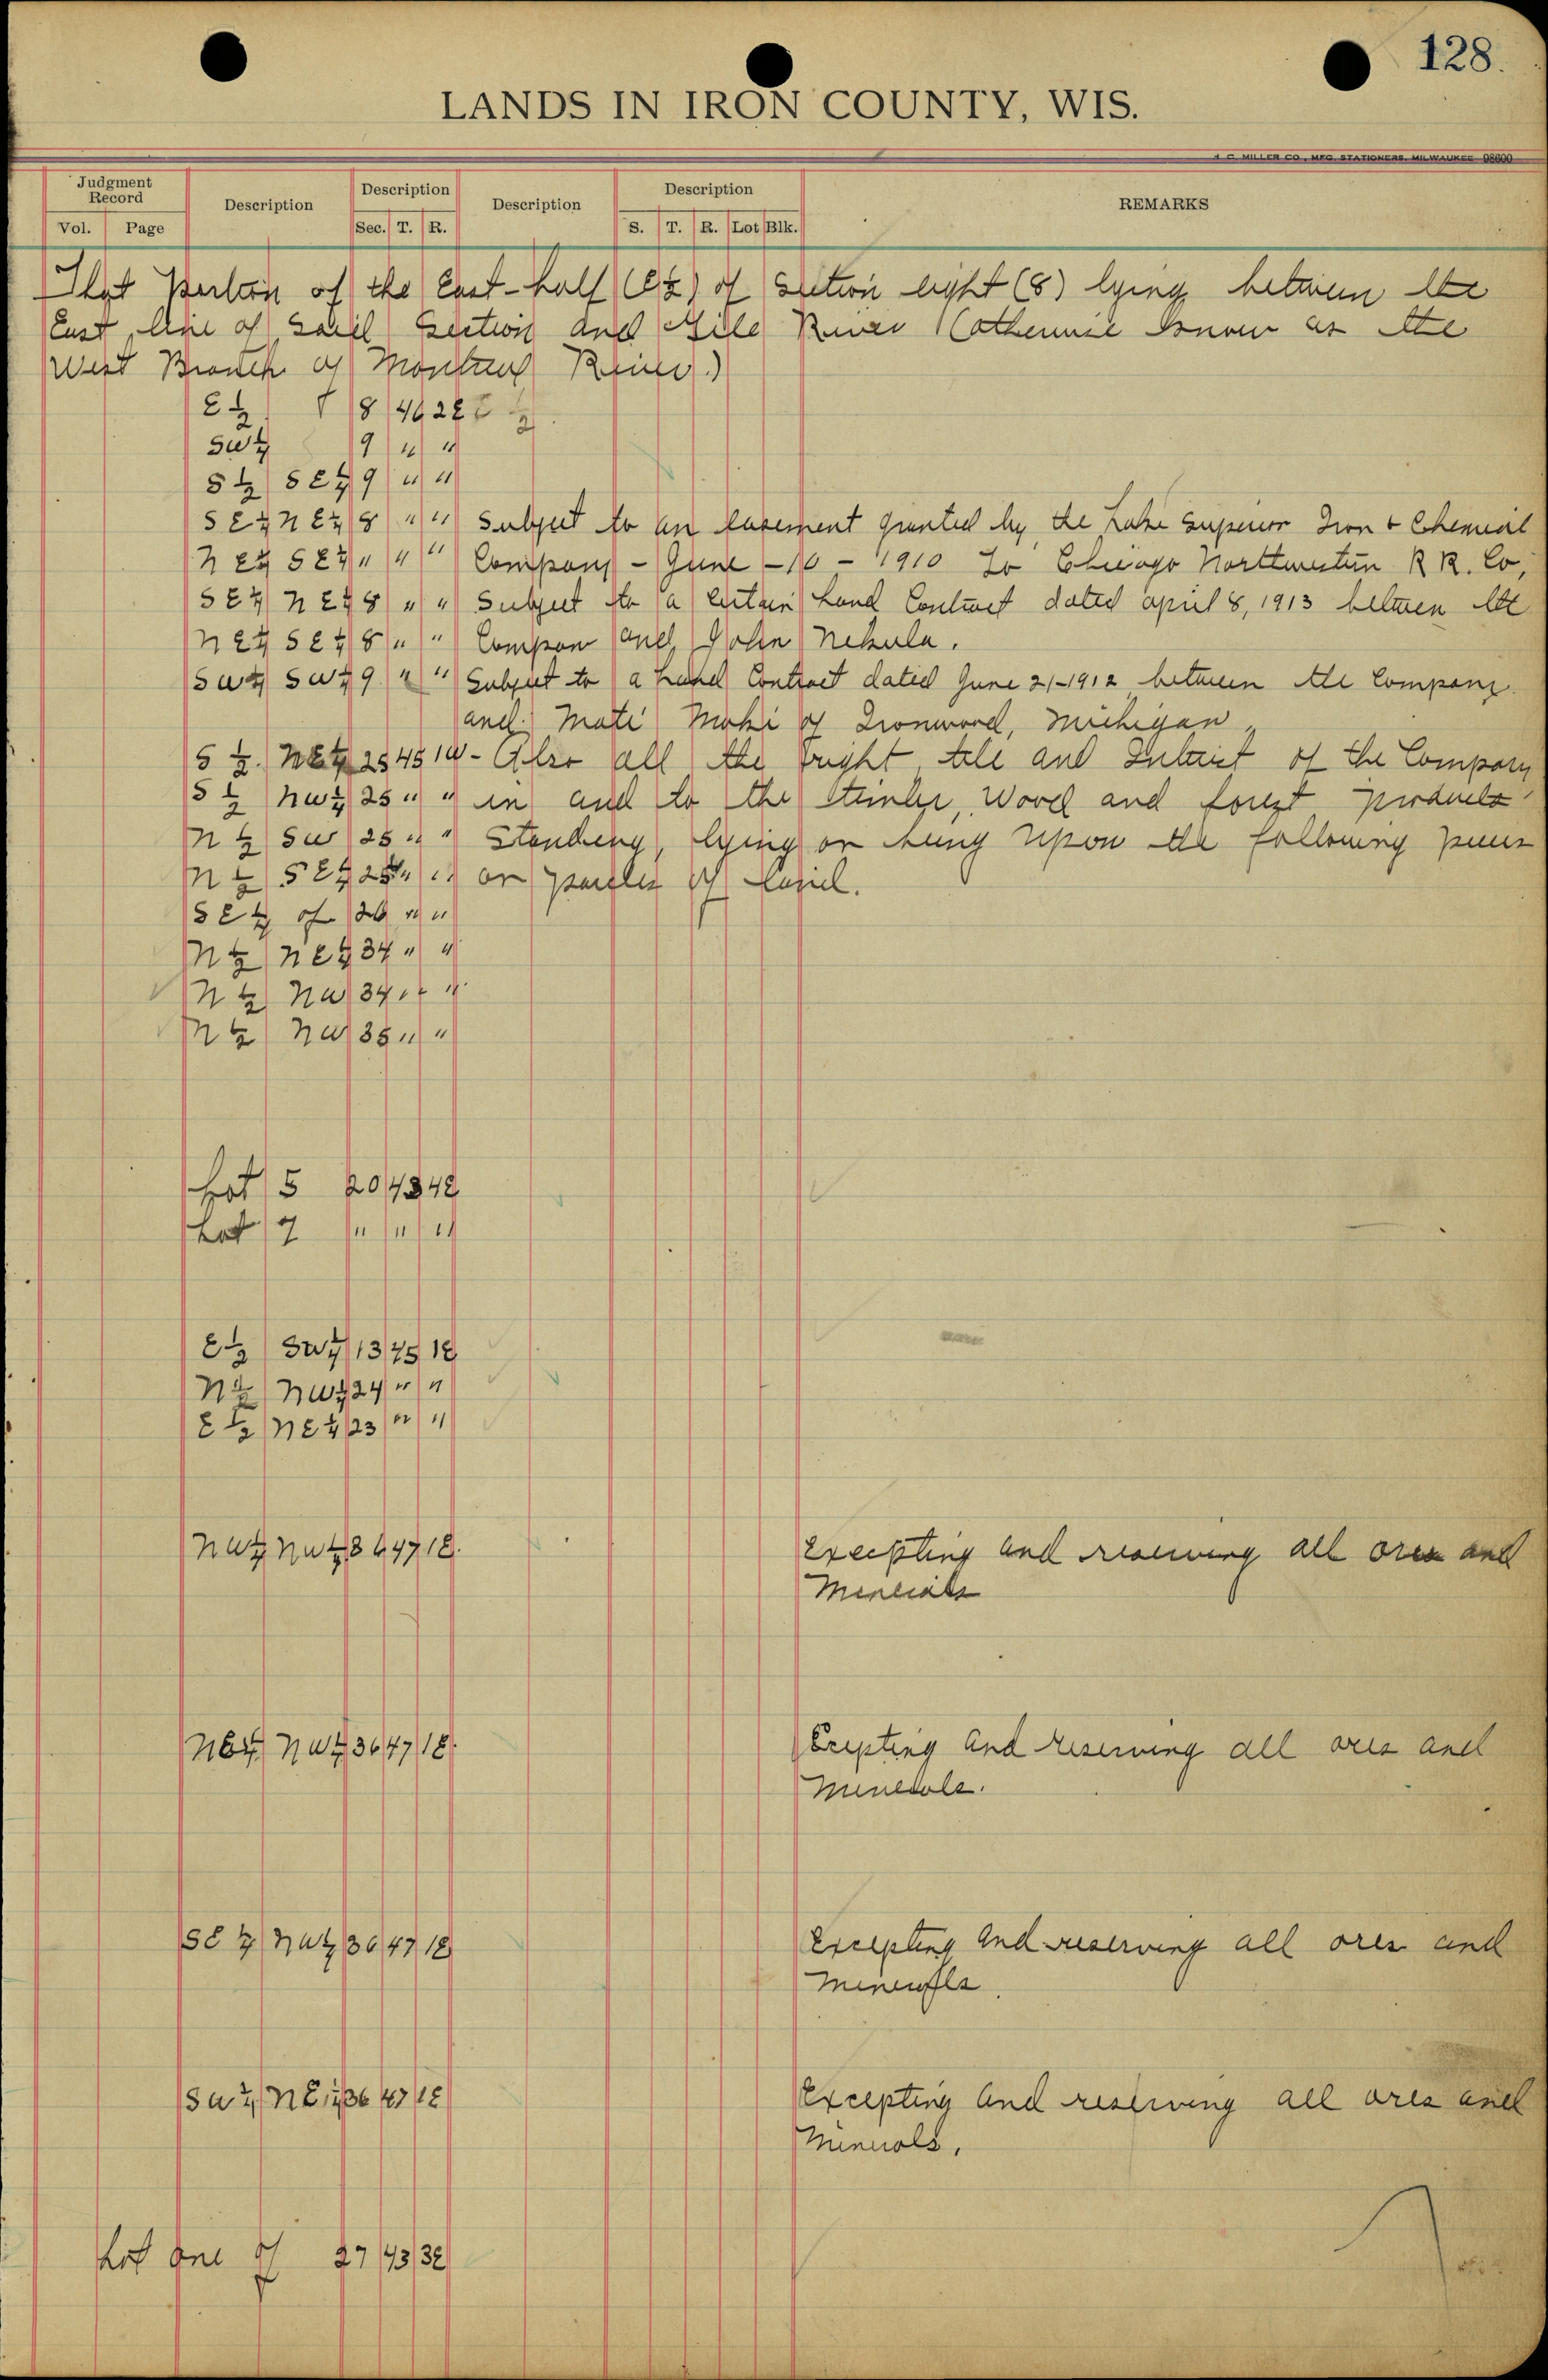 128.
LANDS IN IRON COUNTY, WIS.
H. C. MILLER CO., MFG. STATIONERS, MILWAUKEE 98600
Judgment Record Description Description Description Description REMARKS
Vol. Page Sec. T. R. S. T. R. Lot Blk.
That portion of the East-half (E½) of Section eight (8) lying between the
East line of said Section and Gile River (otherwise known as the
West Branch of Montreal River.)
E ½ 8 46 2E
SW¼ 9 " "
S ½ SE¼ 9 " "
SE¼ NE¼ 8 " " Subject to an easement granted by the Lake Superior Iron & Chemical
NE¼ SE¼ " " " Company - June - 10 - 1910 To Chicago Northwestern R R. Co,
SE¼ NE¼ 8 " " Subject to a certain Land Contract dated April 8, 1913 between the
NE¼ SE¼ 8 " " Compan and John Nekula.
SW¼ SW¼ 9 " " Subject to a Land Contract dated June 21-1912 between the Company
and Mati Maki of Ironwood, Michigan,
S ½ NE¼ 25 45 1W - Also all the right title and Interest of the Company
S ½ NW¼ 25 " " in and to the timber, Wood and forest products
N ½ SW 25 " " Standing, lying or being upon the following pieces
N ½ SE¼ 25 " " or parcles of land.
SE¼ of 26 " "
N ½ NE¼ 34 " "
N ½ NW 34 " "
N ½ NW 35 " "
Lot 5 20 43 4E
Lot 7 " " "
E ½ SW¼ 13 45 1E
N ½ NW¼ 24 " "
E ½ NE¼ 23 " "
NW¼ NW¼ 36 47 1E. Excepting and reserving all ores and
Minerals
NE¼ NW¼ 36 47 1E. Excepting and reserving all ores and
Minerals.
SE ¼ NW¼ 36 47 1E Excepting and reserving all ores and
Minerals.
SW¼ NE¼ 36 47 1E Excepting and reserving all ores and
Minerals.
Lot one of 27 43 3E